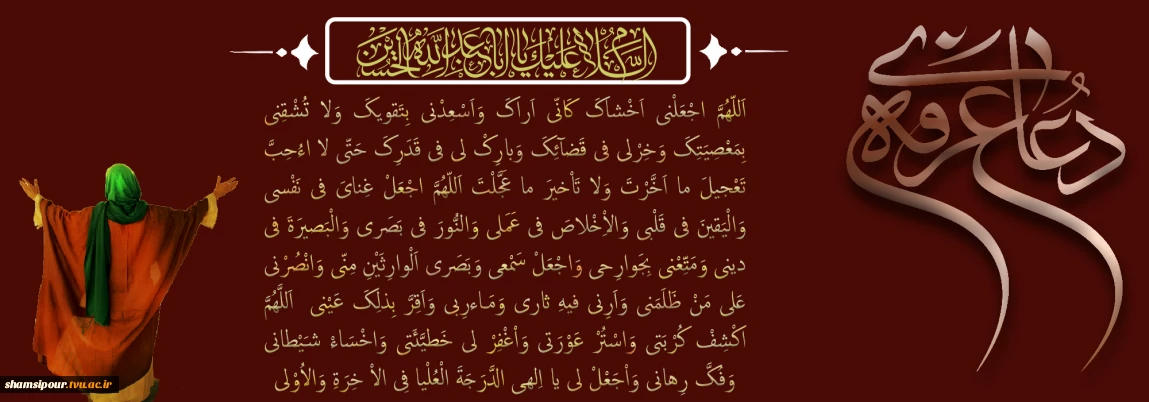 السلام علیك یا اباعبدالله الحسین
دعای عرفه
اَللّهُمَّ اجْعَلْنى اَخْشاکَ کَانّى اَراکَ وَاَسْعِدْنى بِتَقویکَ وَلا تُشْقِنى
بِمَعْصِیَتِکَ وَخِرْلى فى قَضآئِکَ وَبارِکْ لى فى قَدَرِکَ حَتّى لا اءُحِبَّ
تَعْجیلَ ما اَخَّرْتَ وَلا تَاْخیرَ ما عَجَّلْتَ اَللّهُمَّ اجْعَلْ غِناىَ فى نَفْسى
وَالْیَقینَ فى قَلْبى وَالاِْخْلاصَ فى عَمَلى وَالنُّورَ فى بَصَرى وَالْبَصیرَةَ فى
دینى وَمَتِّعْنى بِجَوارِحى وَاجْعَلْ سَمْعى وَبَصَرى اَلْوارِثَیْنِ مِنّى وَانْصُرْنى
عَلى مَنْ ظَلَمَنى وَاَرِنى فیهِ ثارى وَمَـاءرِبى وَاَقِرَّ بِذلِکَ عَیْنى اَللَّهُمَّ
اکْشِفْ کُرْبَتى وَاسْتُرْ عَوْرَتى وَاْغْفِرْ لى خَطیَّئَتى وَاخْسَاءْ شَیْطانى
وَفُکَّ رِهانى وَاْجَعْلْ لى یا اِلهى الدَّرَجَةَ الْعُلْیا فِى الاْ خِرَةِ وَالاُْوْلى
shamsipour.tvu.ac.ir